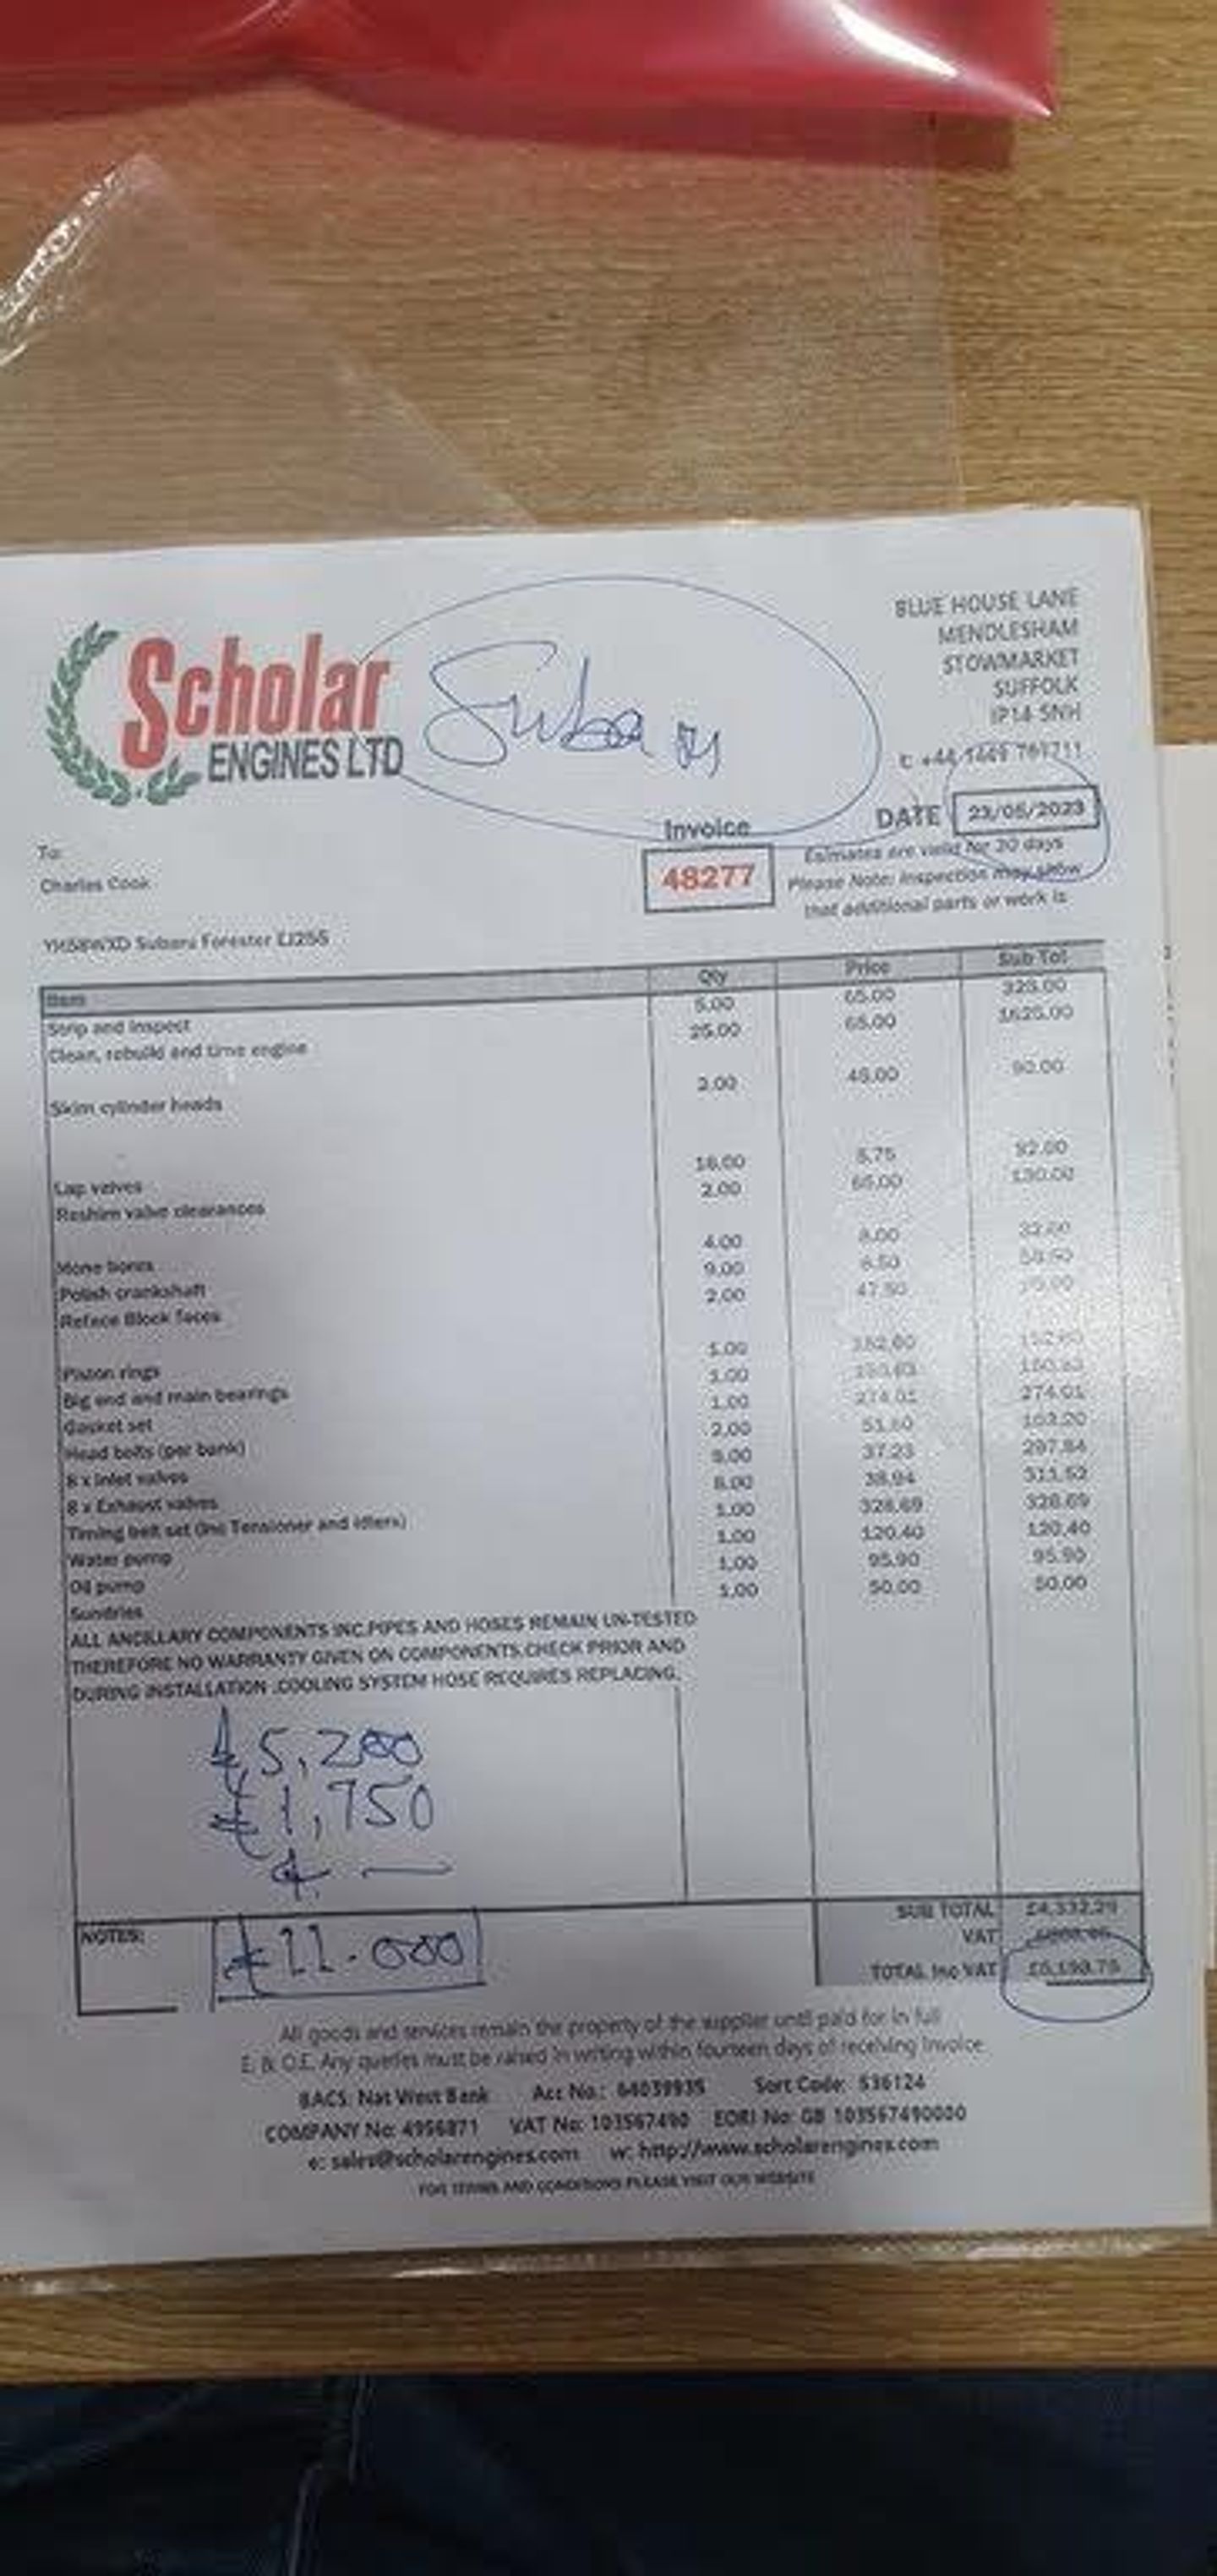 Scholar
ENGINES LTD
Subaru
BLUE HOUSE LANE
MENDLESHAM
STOWMARKET
SUFFOLK
IP14 5NH
DATE 23/05/2023
Invoice
48277
Estimates are valid for 30 days
Please Note: Inspection may show
that additional parts or work is
To:
Charles Cook
Subaru Forester EJ255
Item Qty Price Sub Tot
Strip and inspect 5.00 65.00 325.00
Clean, rebuild and time engine 25.00 65.00 1625.00
Skim cylinder heads 2.00 45.00 90.00
Lap valves 16.00 5.75 92.00
Reshim valve clearances 2.00 65.00 130.00
Hone bores 4.00 8.00 32.00
Polish crankshaft 9.00 6.50 58.50
Reface Block faces 2.00 47.50
Piston rings 1.00
Big end and main bearings 1.00
Gasket set 1.00 274.01 274.01
Head bolts (per bank) 2.00 51.60 103.20
8 x Inlet valves 8.00 37.23 297.84
8 x Exhaust valves 8.00 38.94 311.52
Timing belt set (Inc Tensioner and idlers) 1.00 328.69 328.69
Water pump 1.00 120.40 120.40
Oil pump 1.00 95.90 95.90
Sundries 1.00 50.00 50.00
ALL ANCILLARY COMPONENTS INC.PIPES AND HOSES REMAIN UN-TESTED
THEREFORE NO WARRANTY GIVEN ON COMPONENTS.CHECK PRIOR AND
DURING INSTALLATION .COOLING SYSTEM HOSE REQUIRES REPLACING.
£5,200
£1,750
NOTES:
£11.000
SUB TOTAL £4,332.29
VAT
TOTAL Inc VAT £5,198.75
All goods and services remain the property of the supplier until paid for in full
E. & O.E. Any queries must be raised in writing within fourteen days of receiving Invoice
BACS: Nat West Bank Acc No.: 64039935 Sort Code: 536124
COMPANY No: 4956871 VAT No: 103567490 EORI No: GB 103567490000
e: sales@scholarengines.com w: http://www.scholarengines.com
FOR TERMS AND CONDITIONS PLEASE VISIT OUR WEBSITE